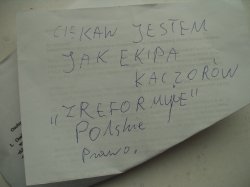 CIEKAW JESTEM
JAK EKIPA
KACZORÓW
„ZREFORMUJE"
Polskie
Prawo.